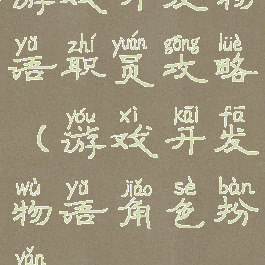 游戏开发物
yǔ zhí yuán gōng lüè
语职员攻略
yóu xì kāi fā
(游戏开发
wù yǔ jiǎo sè bàn
物语角色扮
yǎn